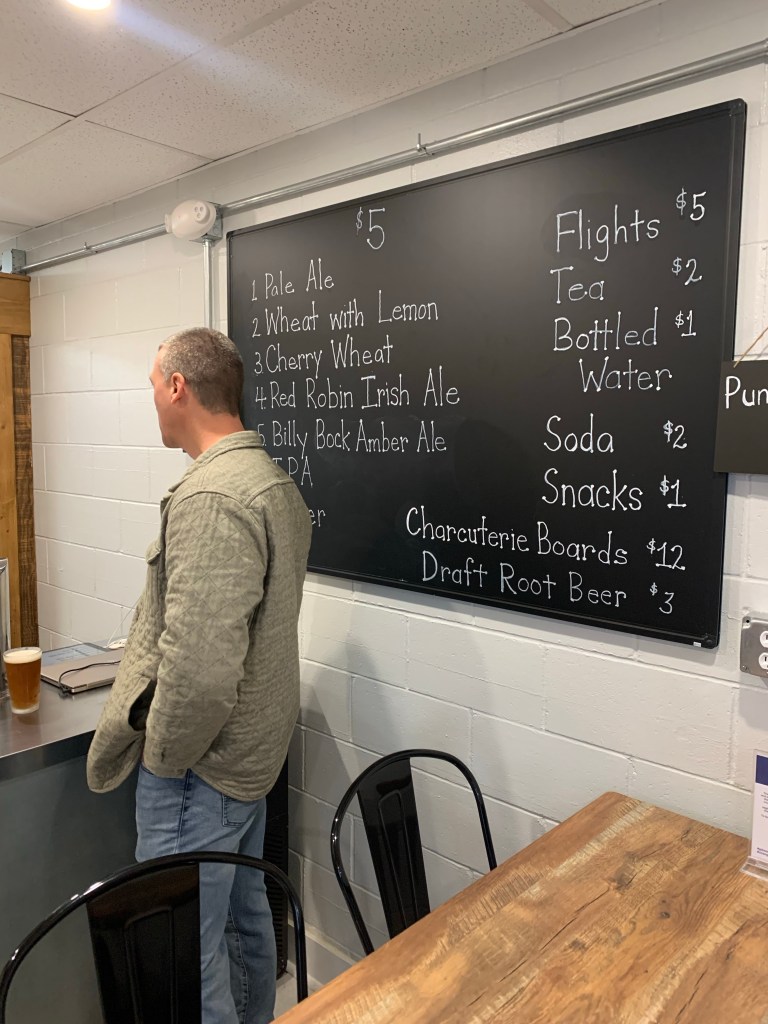 $5
1 Pale Ale
2 Wheat with Lemon
3 Cherry Wheat
4 Red Robin Irish Ale
5. Billy Bock Amber Ale
IPA
Flights $5
Tea $2
Bottled $1
Water
Soda $2
Snacks $1
Charcuterie Boards $12
Draft Root Beer $3